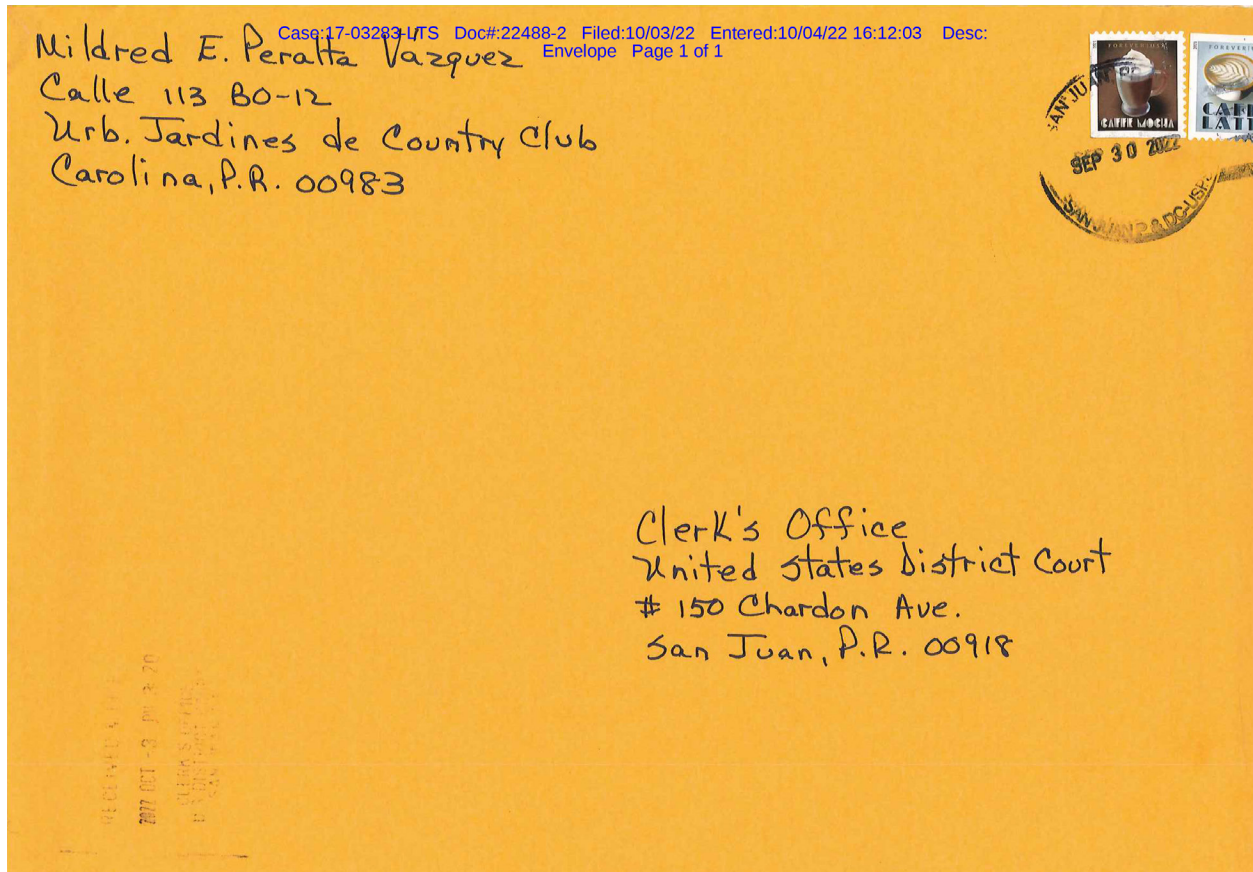 Case:17-03283-LTS Doc#:22488-2 Filed:10/03/22 Entered:10/04/22 16:12:03 Desc:
Envelope Page 1 of 1
Mildred E. Peralta Vazquez
Calle 113 BO-12
Urb. Jardines de Country Club
Carolina, P.R. 00983
FOREVER
CAFFE MOCHA
FOREVER
SAN JUAN
SEP 30 2022
SAN JUAN P & DC-
Clerk's Office
United States District Court
# 150 Chardon Ave.
San Juan, P.R. 00918
RECEIVED &
2022 OCT -3 PM
CLERK'S OFFICE